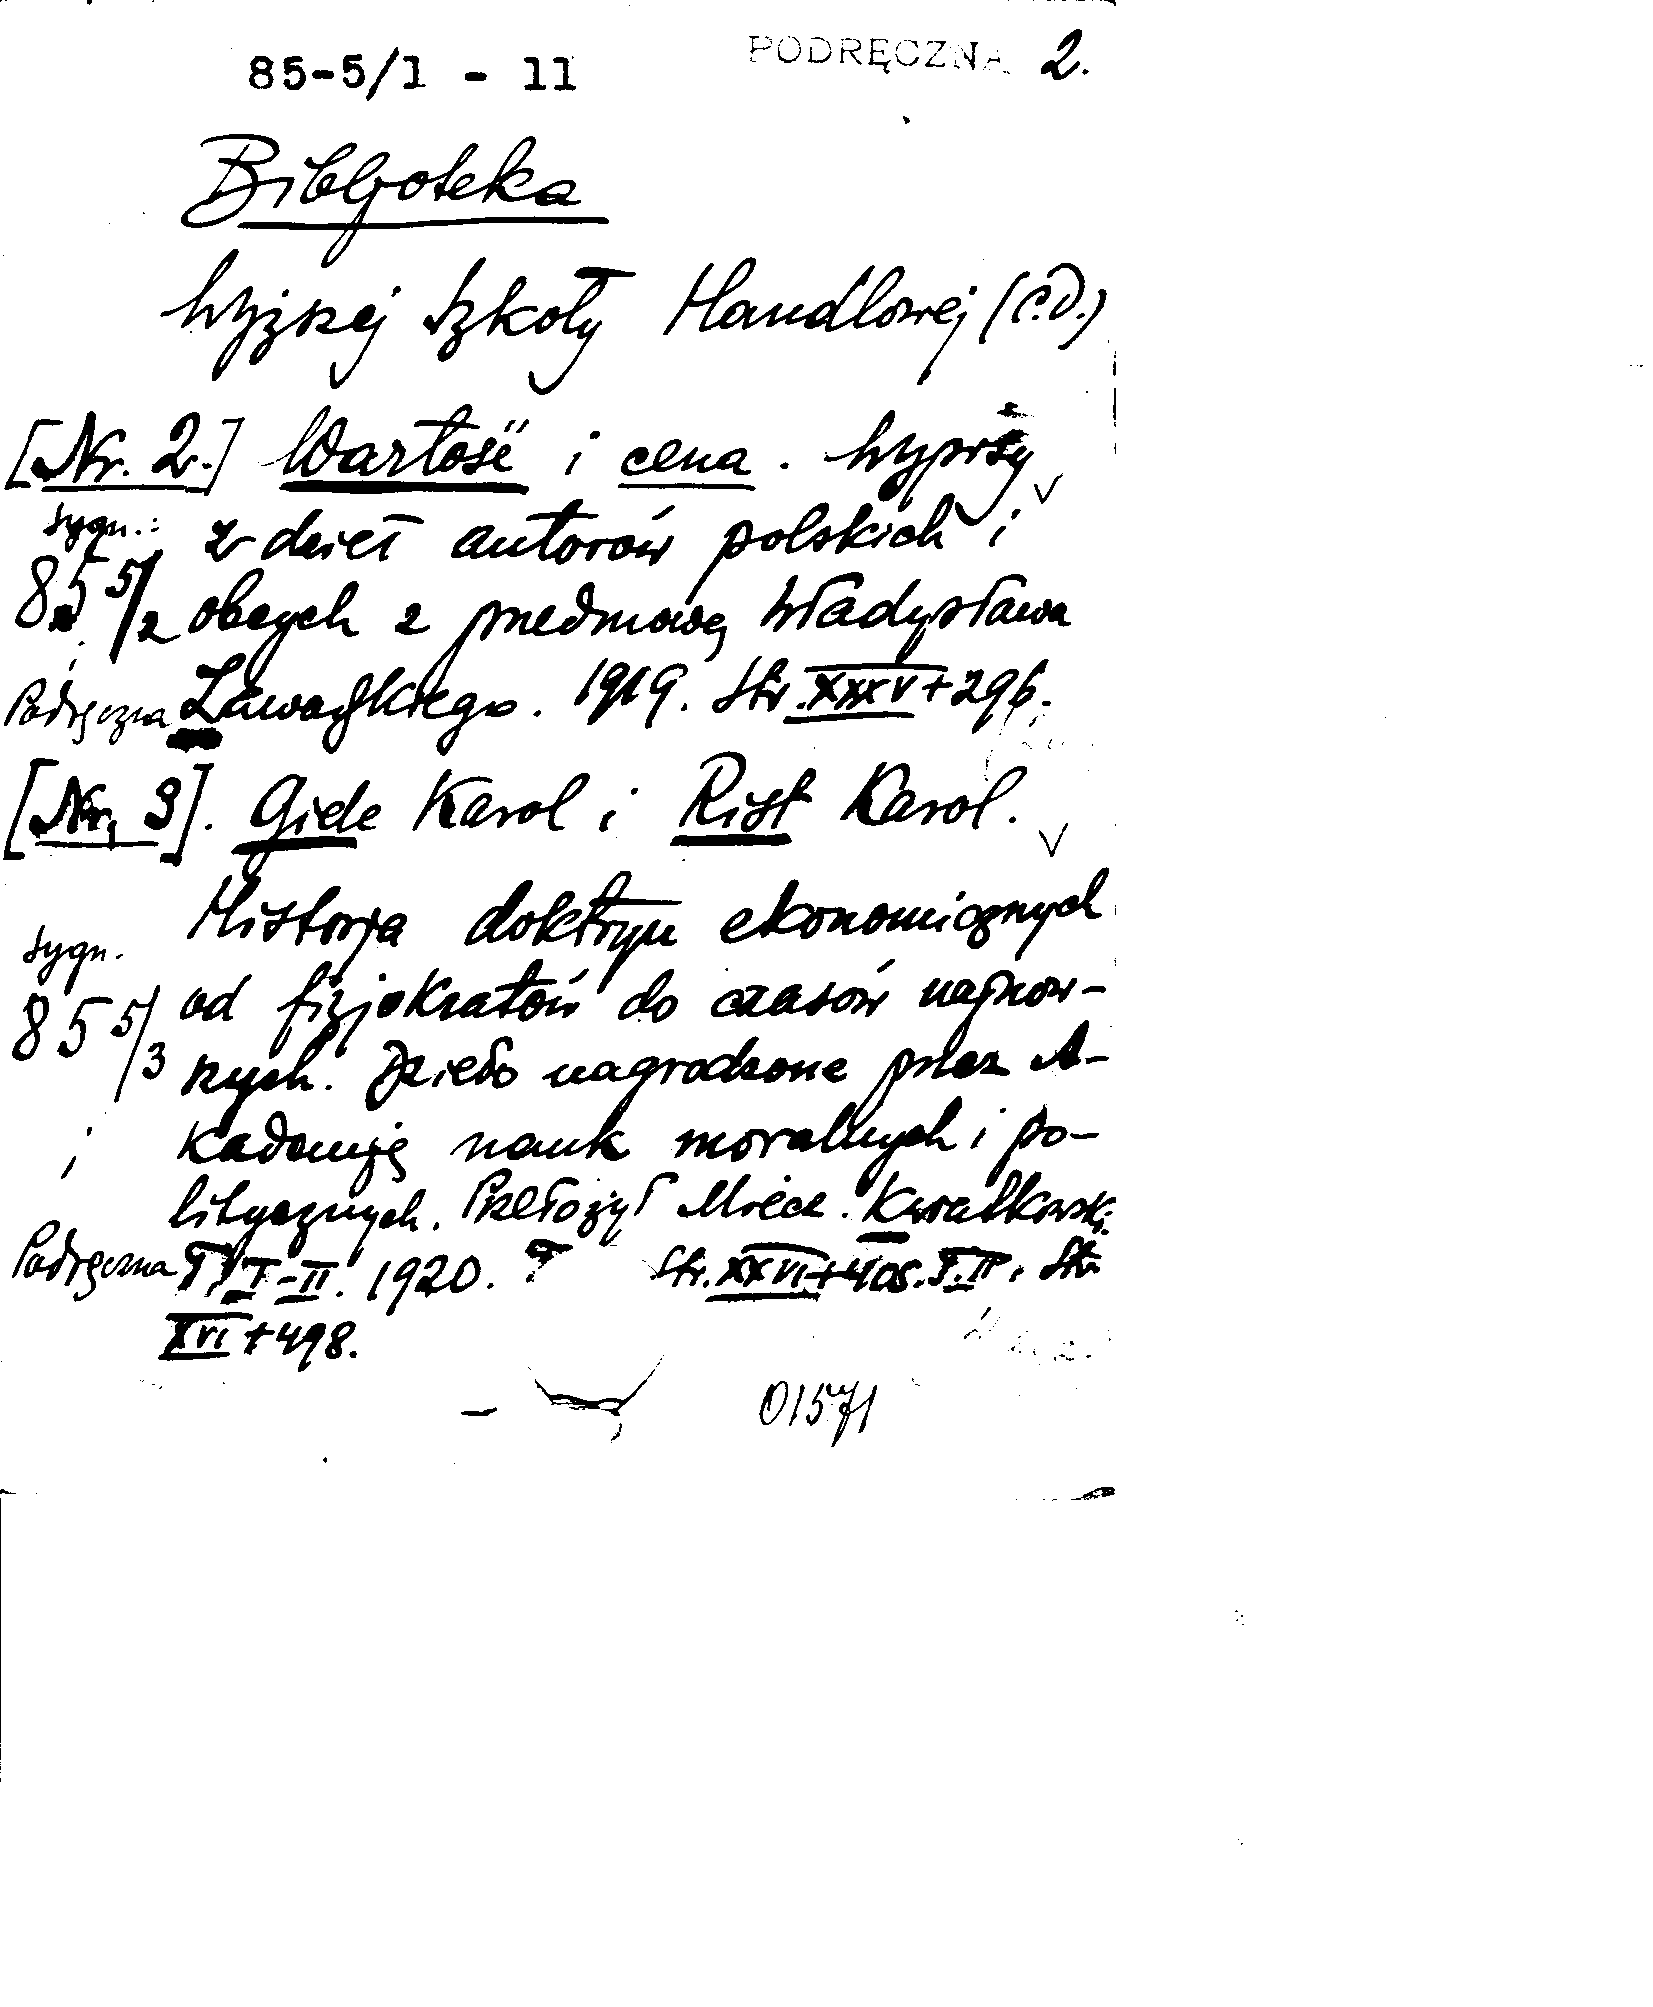 85-5/1 - 11 PODRĘCZNA 2.
Bibljoteka
Wyższej Szkoły Handlowej (c.d.)
[Nr. 2.] Wartość i cena. Wypisy
sygn.: z dzieł autorów polskich i
85 5/2 obcych z przedmową Władysława
i
Podręczna Zawadzkiego. 1919. Str. XXXV+296.
[Nr. 3]. Gide Karol i Rist Karol.
Historja doktryn ekonomicznych
sygn.
85 5/3 od fizjokratów do czasów najnow-
szych. Dzieło nagrodzone przez A-
i kademję nauk moralnych i po-
litycznych. Przełożył Miecz. Kwiatkowski.
Podręczna T. I-II. 1920. Str. XXVI+408. T. II. Str.
XVI+498.
01571